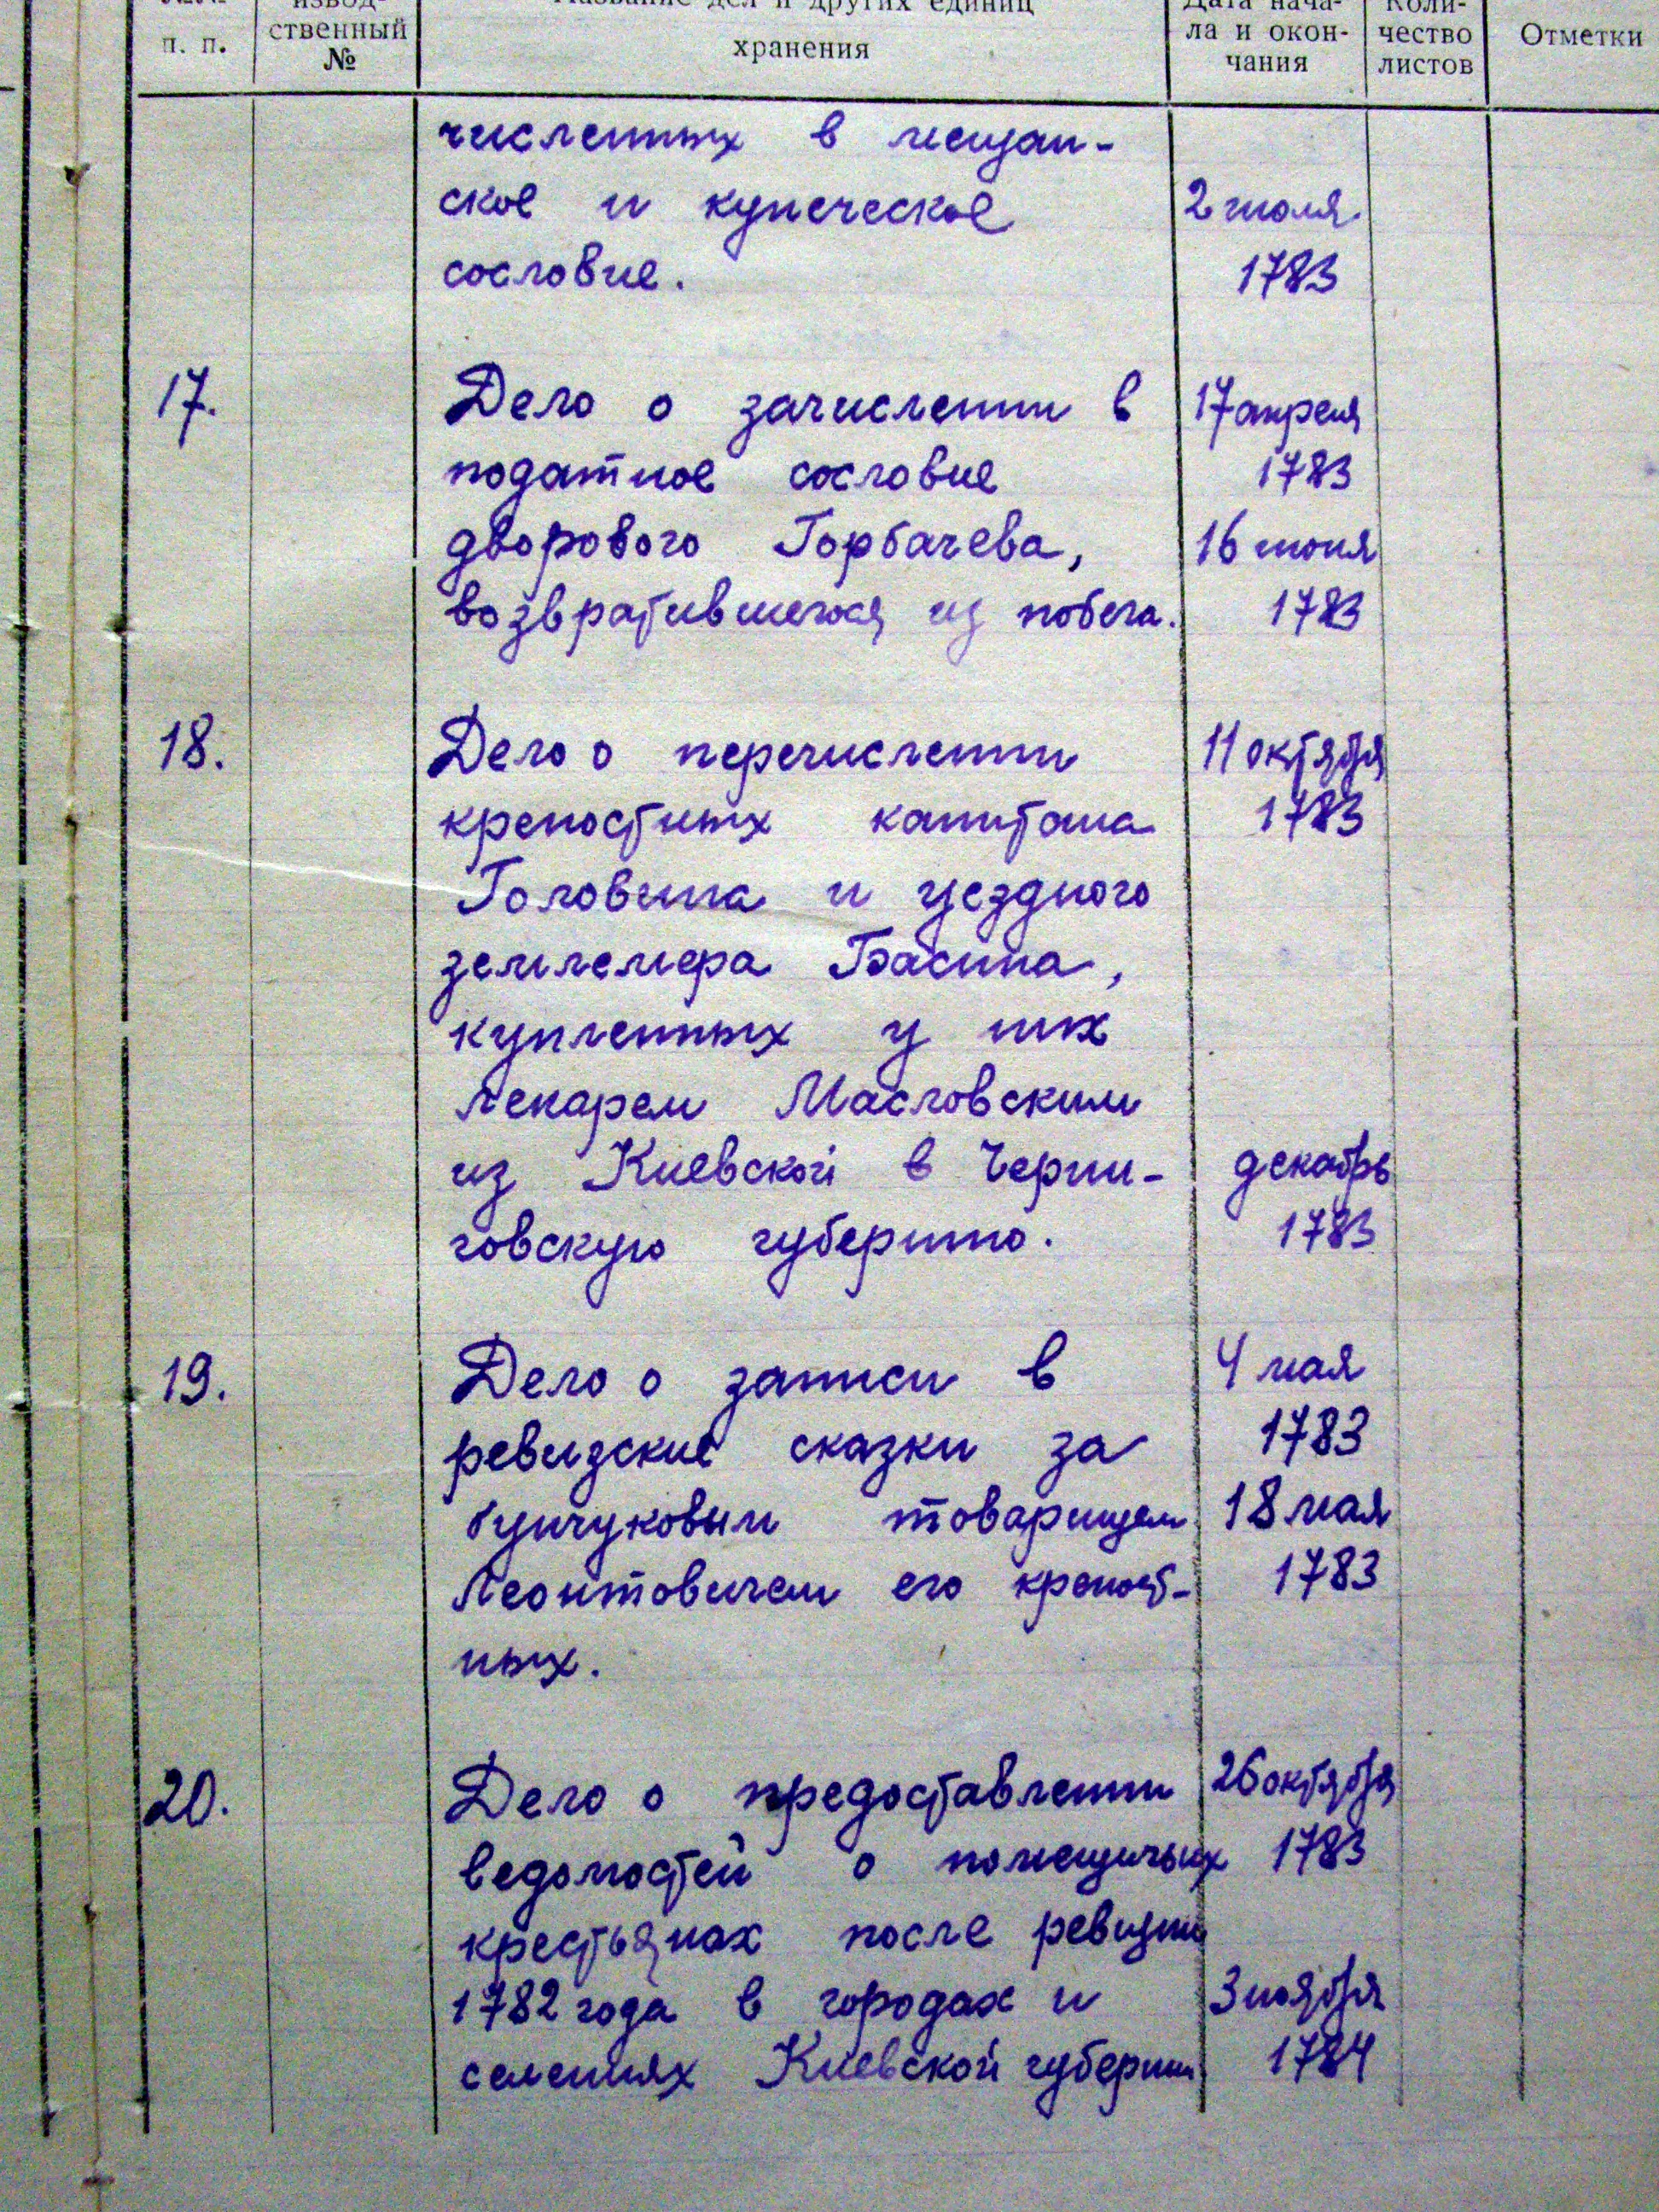 п. п.
ственный
№
Название дел и других единиц
хранения
Дата нача-
ла и окон-
чания
Коли-
чество
листов
Отметки
численных в мещан-
ское и купеческое 2 июля
сословие. 1783
17. Дело о зачислении в 17 апреля
податное сословие 1783
дворового Горбачева, 16 июня
возвратившегося из побега. 1783
18. Дело о перечислении 11 октября
крепостных капитана 1783
Головина и уездного
землемера Басина,
купленных у них
лекарем Масловским
из Киевской в Черни- декабрь
говскую губернию. 1783
19. Дело о записи в 4 мая
ревизские сказки за 1783
бунчуковым товарищем 18 мая
Леонтовичем его крепост- 1783
ных.
20. Дело о предоставлении 26 октября
ведомостей о помещичьих 1783
крестьянах после ревизии
1782 года в городах и 3 ноября
селениях Киевской губернии 1784